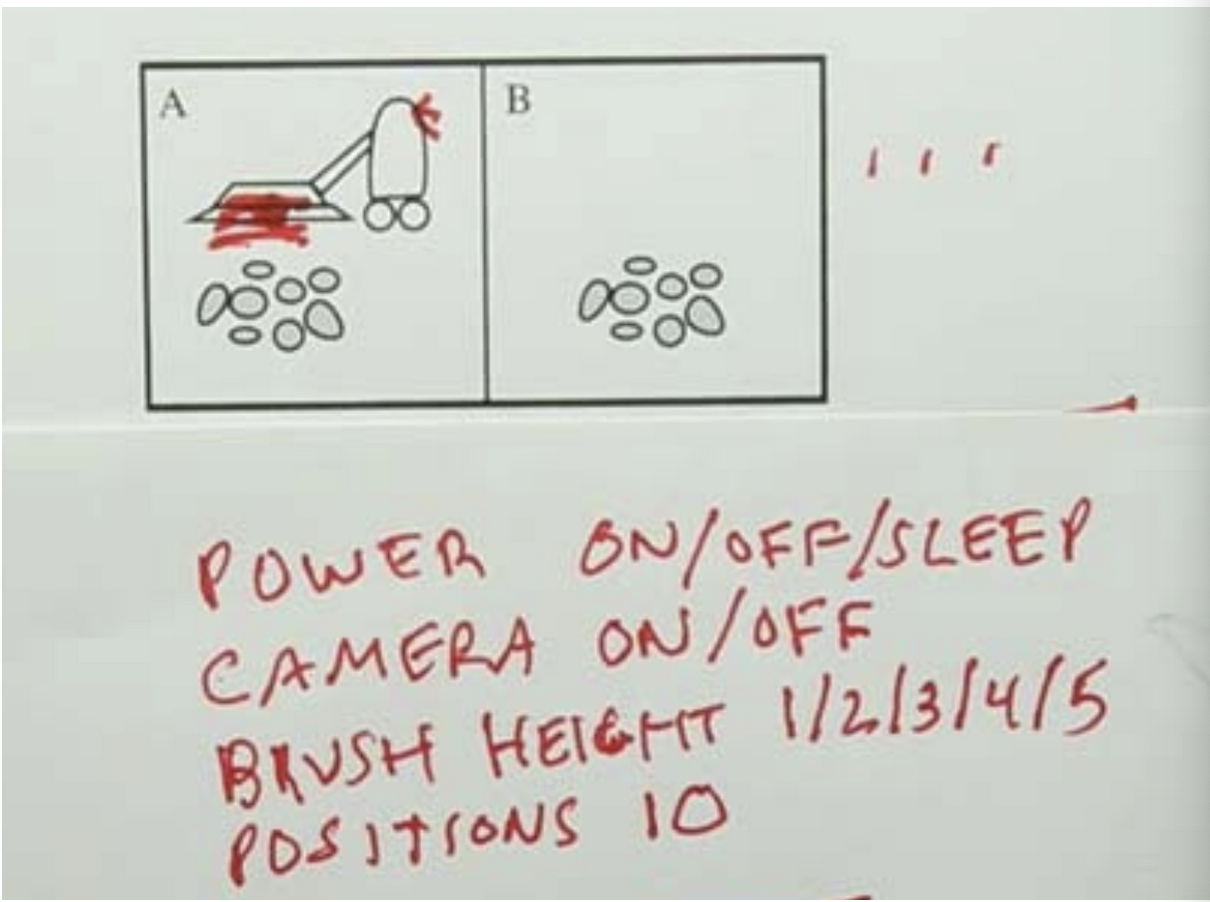 A B
POWER ON/OFF/SLEEP
CAMERA ON/OFF
BRUSH HEIGHT 1/2/3/4/5
POSITIONS 10